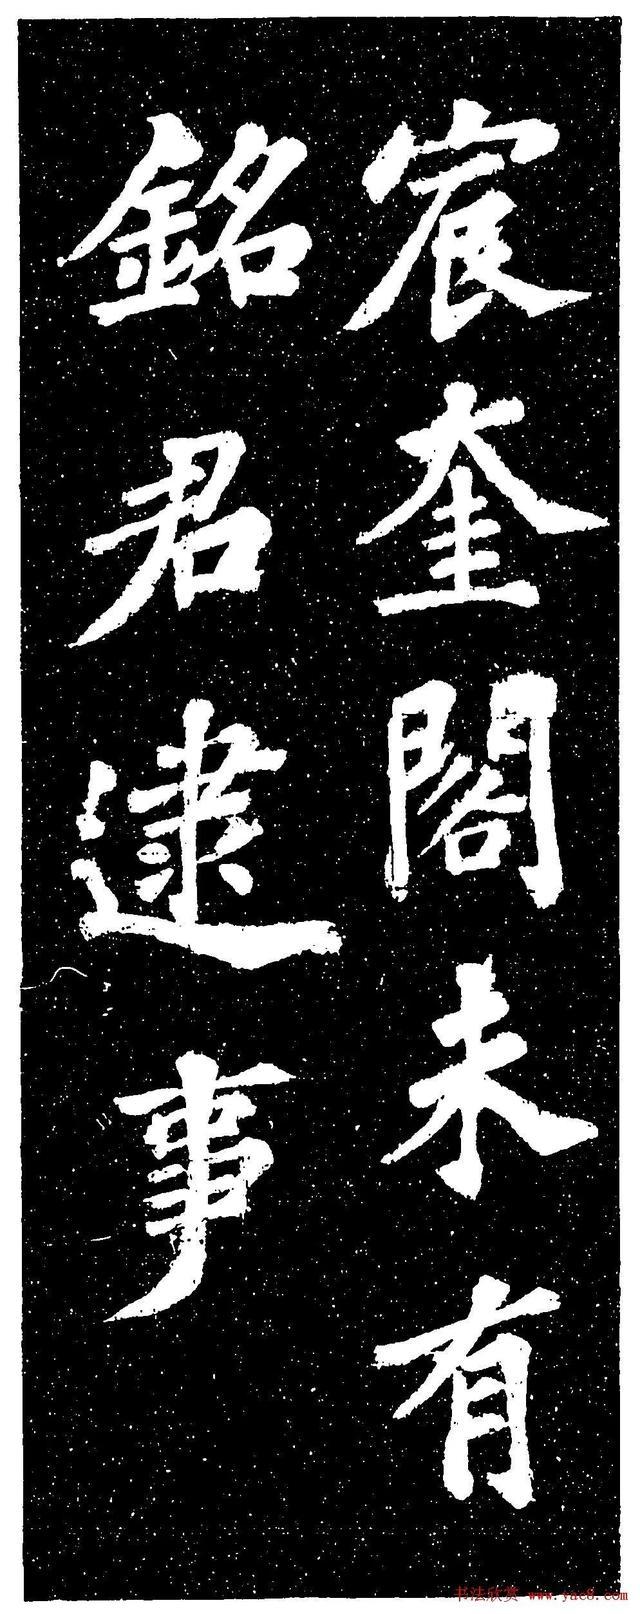 宸奎閣未有
銘君逮事
书法欣赏 www.yac8.com